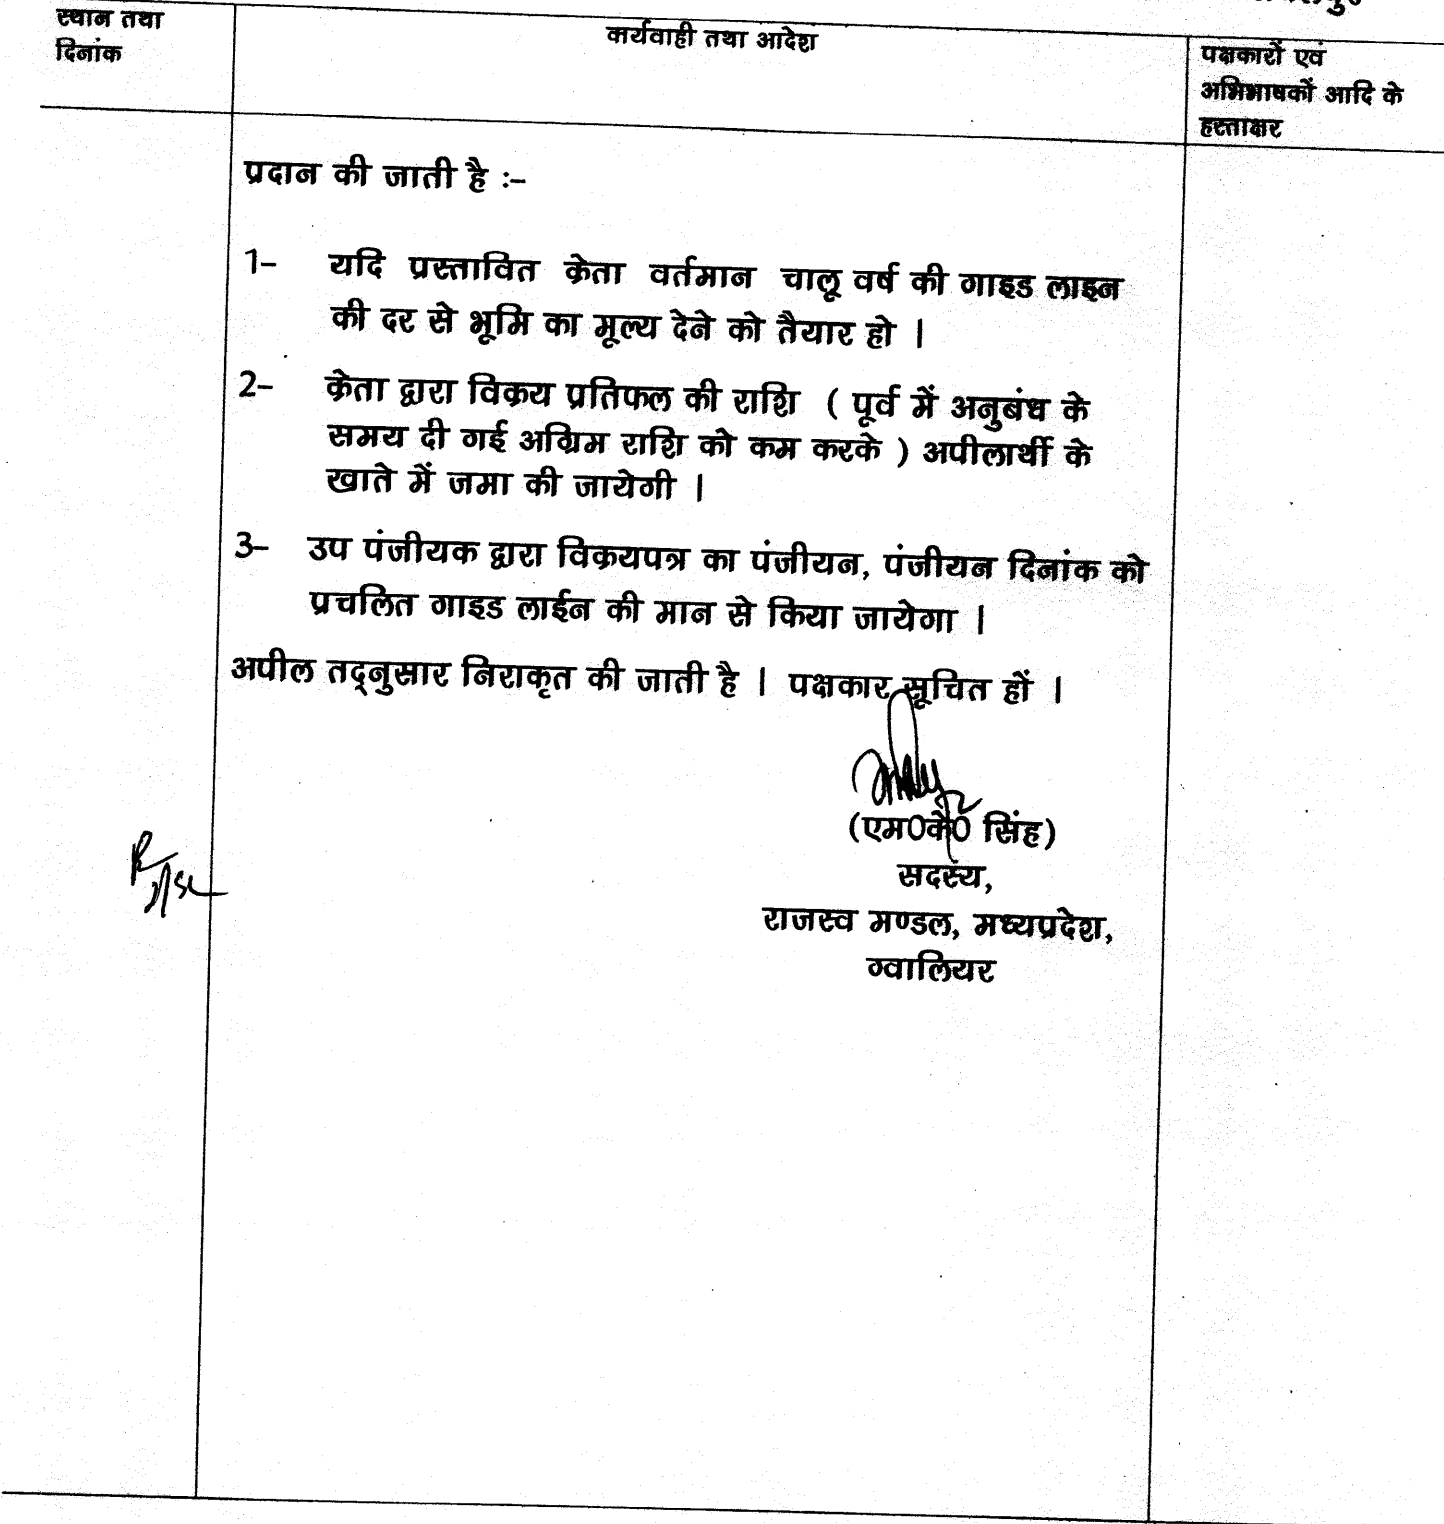 स्थान तथा
दिनांक
कार्यवाही तथा आदेश
पक्षकारों एवं
अभिभाषकों आदि के
हस्ताक्षर
प्रदान की जाती है :-
1- यदि प्रस्तावित क्रेता वर्तमान चालू वर्ष की गाइड लाइन
की दर से भूमि का मूल्य देने को तैयार हो |
2- क्रेता द्वारा विक्रय प्रतिफल की राशि ( पूर्व में अनुबंध के
समय दी गई अग्रिम राशि को कम करके ) अपीलार्थी के
खाते में जमा की जायेगी |
3- उप पंजीयक द्वारा विक्रयपत्र का पंजीयन, पंजीयन दिनांक को
प्रचलित गाइड लाईन की मान से किया जायेगा |
अपील तद्नुसार निराकृत की जाती है | पक्षकार सूचित हों |
(एम0के0 सिंह)
सदस्य,
राजस्व मण्डल, मध्यप्रदेश,
ग्वालियर